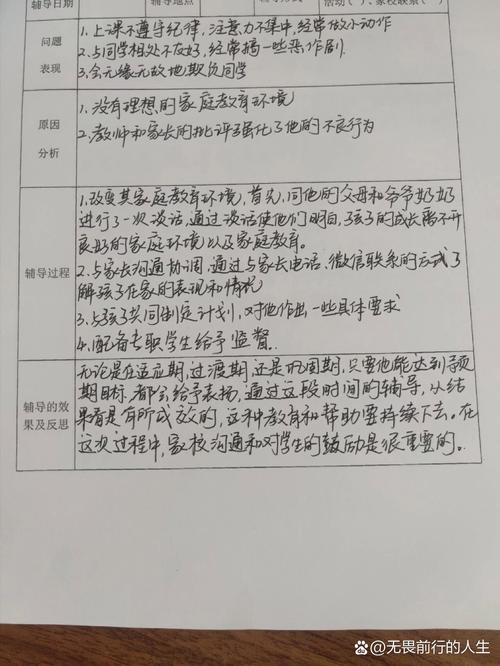 辅导日期
辅导地点
活动( )、家校联系( )
问题
表现
1.上课不遵守纪律，注意力不集中，经常做小动作
2.与同学相处不友好，经常搞一些恶作剧
3.会无缘无故地欺负同学
原因
分析
1.没有理想的家庭教育环境
2.教师和家长的批评强化了他的不良行为
辅导过程
1.改变其家庭教育环境，首先，同他的父母和爷爷奶奶
进行了一次谈话，通过谈话使他们明白，孩子的成长离不开
良好的家庭环境以及家庭教育。
2.与家长沟通协调，通过与家长电话、微信联系的方式了
解孩子在家的表现和情况
3.与孩子共同制定计划，对他作出一些具体要求
4.配备专职学生给予监督。
辅导的效
果及反思
无论是在适应期，过渡期，还是巩固期，只要他能达到预
期目标，都会给予表扬，通过这段时间的辅导，从结
果看是有所成效的，这种教育和帮助要持续下去。在
这次过程中，家校沟通和对学生的鼓励是很重要的。
百家号/无畏前行的人生